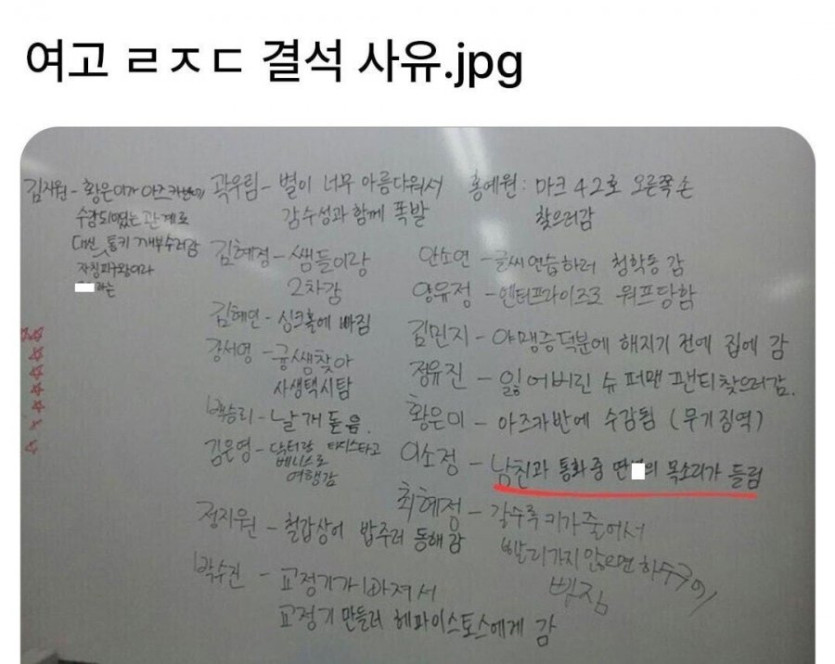 여고 ㄹㅈㄷ 결석 사유.jpg
김지원 - 황은이가 아즈카반에
수감되었는 관계로
대신 퉁키 깨부수러감
자칭피구왕이라
라는
곽우림 - 별이 너무 아름다워서
감수성과 함께 폭발
김혜정 - 쌤들이랑
2차감
김혜연 - 싱크홀에 빠짐
강서영 - 궁쌤찾아
사생택시탐
백승리 - 날개돋음.
김은영 - 닥터랑 타디스타고
베니스로
여행감
정지원 - 철갑상어 밥주러 동해감
박수진 - 교정기가 빠져서
교정기 만들러 헤파이스토스에게 감
홍예원 : 마크 42호 오른쪽 손
찾으러감
안소연 - 글씨연습하러 청학동 감
양유정 - 엔터프라이즈로 워프당함
김민지 - 야맹증덕분에 해지기 전에 집에 감
정유진 - 잃어버린 슈퍼맨 팬티찾으러감.
황은미 - 아즈카반에 수감됨 (무기징역)
이소정 - 남친과 통화 중 딴 의 목소리가 들림
최혜정 - 갈수록 키가줄어서
빨리가지 않으면 하수구에
빠짐